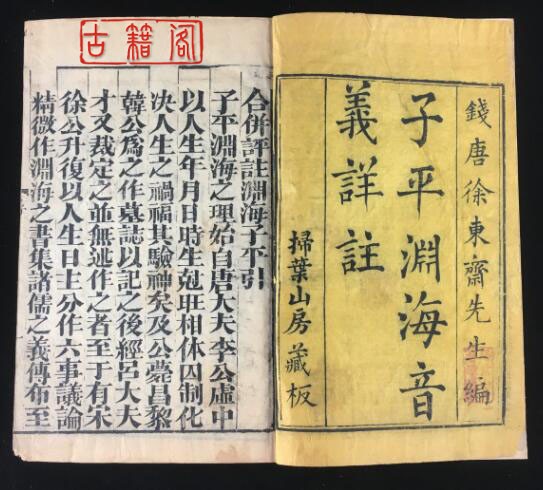 錢唐徐東齋先生編
子平淵海音
義詳註
掃葉山房藏板
古籍阁
合併評註淵海子平引
子平淵海之理始自唐大夫李公虛中
以人生年月日時生剋旺相休囚制化
决人生之禍福其驗神矣及公薨昌黎
韓公爲之作墓誌以記之後經呂大夫
才又裁定之並無述作之者至于有宋
徐公升復以人生日主分作六事議論
精微作淵海之書集諸儒之義傳布至